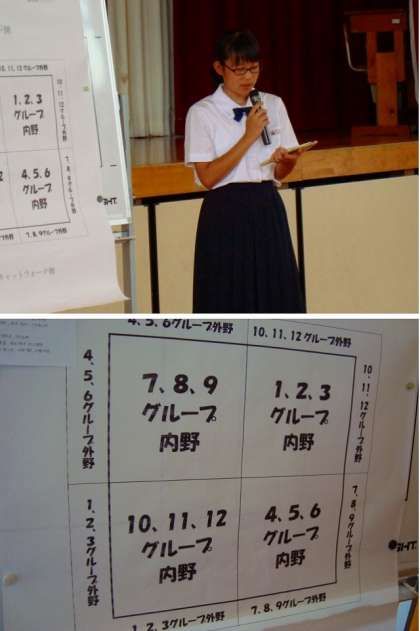 10、11、12グループ外野
1、2、3
グループ
内野
10、11、12グループ外野
4、5、6
グループ
内野
7、8、9グループ外野
7、8、9グループ外野
キャットウォーク側
4、5、6グループ外野
10、11、12グループ外野
4、5、6グループ外野
7、8、9
グループ
内野
1、2、3
グループ
内野
10、11、12グループ外野
1、2、3グループ外野
10、11、12
グループ
内野
4、5、6
グループ
内野
7、8、9グループ外野
1、2、3グループ外野
7、8、9グループ外野